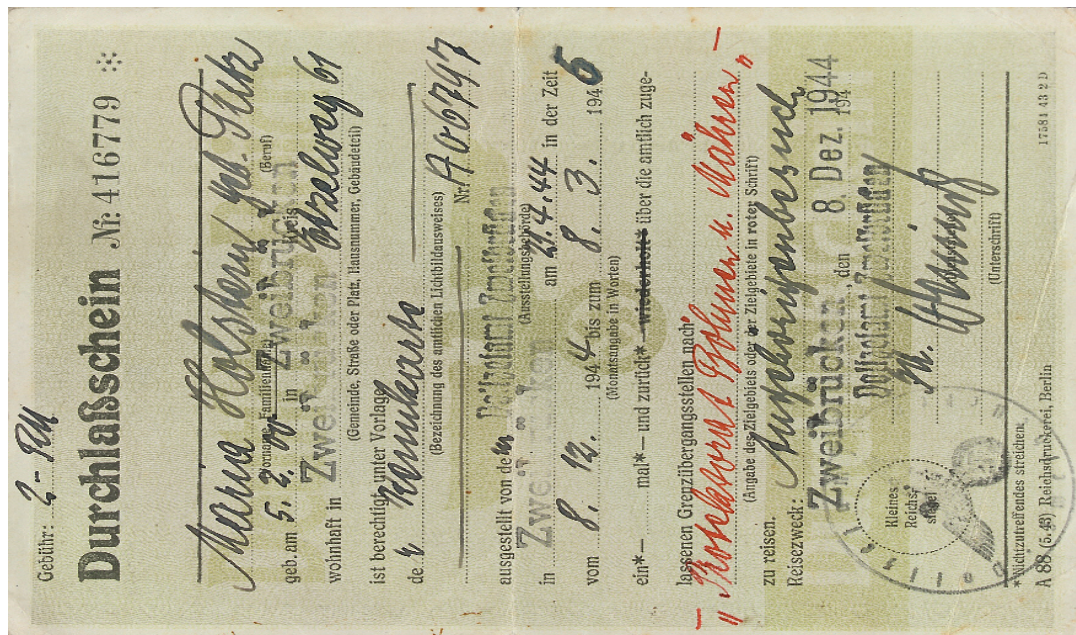 Gebühr: 2.- RM
Durchlaßschein № 416779
Maria Holstein geb.
Vorname, Familienname (Beruf)
geb. am 5. 2. in Zweibrücken Kreis
wohnhaft in Zweibrücken 61
(Gemeinde, Straße oder Platz, Hausnummer, Gebäudeteil)
ist berechtigt, unter Vorlage
der Kennkarte
(Bezeichnung des amtlichen Lichtbildausweises)
Nr. A 006797
ausgestellt von dem Polizeiamt Zweibrücken
(Ausstellungsbehörde)
in Zweibrücken am 21.4.44 in der Zeit
vom 8. 12. 1944 bis zum 8. 3. 1945
(Monatsangabe in Worten)
ein*— mal*— und zurück*—wiederholt* über die amtlich zuge-
lassenen Grenzübergangsstellen nach
— "Protektorat Böhmen u. Mähren" —
(Angabe des Zielgebiets oder der Zielgebiete in roter Schrift)
zu reisen.
Reisezweck: Angehörigenbesuch
Zweibrücken, den 8. Dez. 1944
194
Polizeiamt Zweibrücken
Kleines
Reichs-
siegel
(Unterschrift)
* Nichtzutreffendes streichen.
A 88 (5. 43) Reichsdruckerei, Berlin
17584 43 2 D